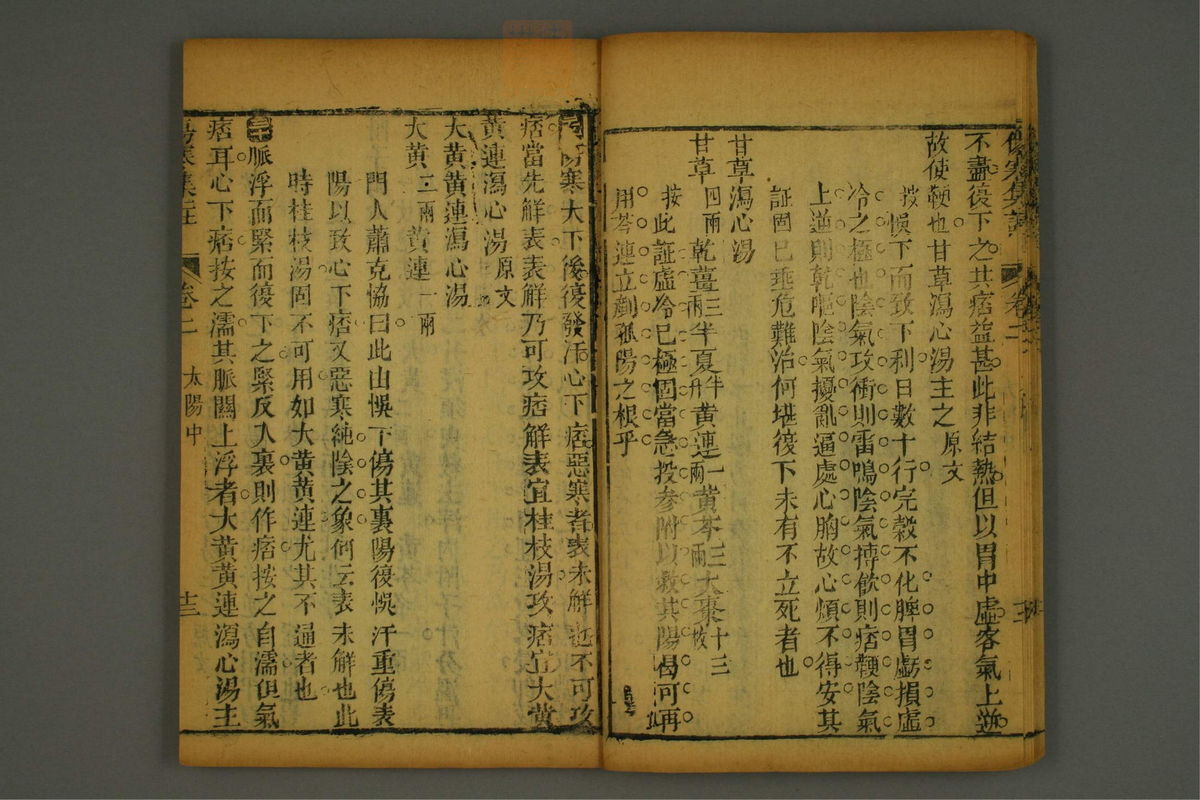 不盡復下之其痞益甚此非結熱但以胃中虛客氣上逆
故使鞕也甘草瀉心湯主之 原文
按悞下而致下利日數十行完穀不化脾胃虧損虛
冷之極也陰氣攻衝則雷鳴陰氣搏飲則痞鞕陰氣
上逆則乾嘔陰氣擾亂逼處心胸故心煩不得安其
証固已垂危難治何堪復下未有不立死者也
甘草瀉心湯
甘草四兩 乾薑三兩 半夏半升 黃連一兩 黃芩三兩 大棗十三枚
按此証虛冷已極固當急投參附以救其陽曷可再
用芩連立剷孤陽之根乎
傷寒大下後復發汗心下痞惡寒者表未解也不可攻
痞當先解表表解乃可攻痞解表宜桂枝湯攻痞宜大黃
黃連瀉心湯 原文
大黃黃連瀉心湯
大黃二兩 黃連一兩
門人蕭克協曰此由悞下傷其裏陽復悞汗重傷表
陽以致心下痞又惡寒純陰之象何云表未解也此
時桂枝湯固不可用如大黃黃連尤其不逼者也
脈浮而緊而復下之緊反入裏則作痞按之自濡但氣
痞耳心下痞按之濡其脈關上浮者大黃黃連瀉心湯主
傷寒集註 卷二 太陽中 十三